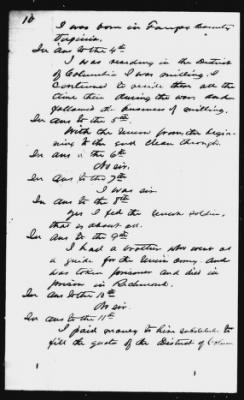 10
I was born in Fairfax County
Virginia.
In Ans to the 4th
I was residing in the District
of Columbia I was milling. I
continued to reside there all the
time there during the war and
followed the business of milling.
In Ans to the 5th
With the Union from the begin-
ning to the end clean through.
In Ans " the 6th
No sir.
In Ans to the 7th
I was sir
In Ans to the 8th
Yes I fed the Union soldiers,
that is about all.
In Ans to the 9th
I had a brother who went as
a guide for the Union army, and
was taken prisoner and died in
prison in Richmond.
In Ans to the 10th
No sir.
In Ans to the 11th
I paid money to hire substitutes to
fill the quota of the District of Colum